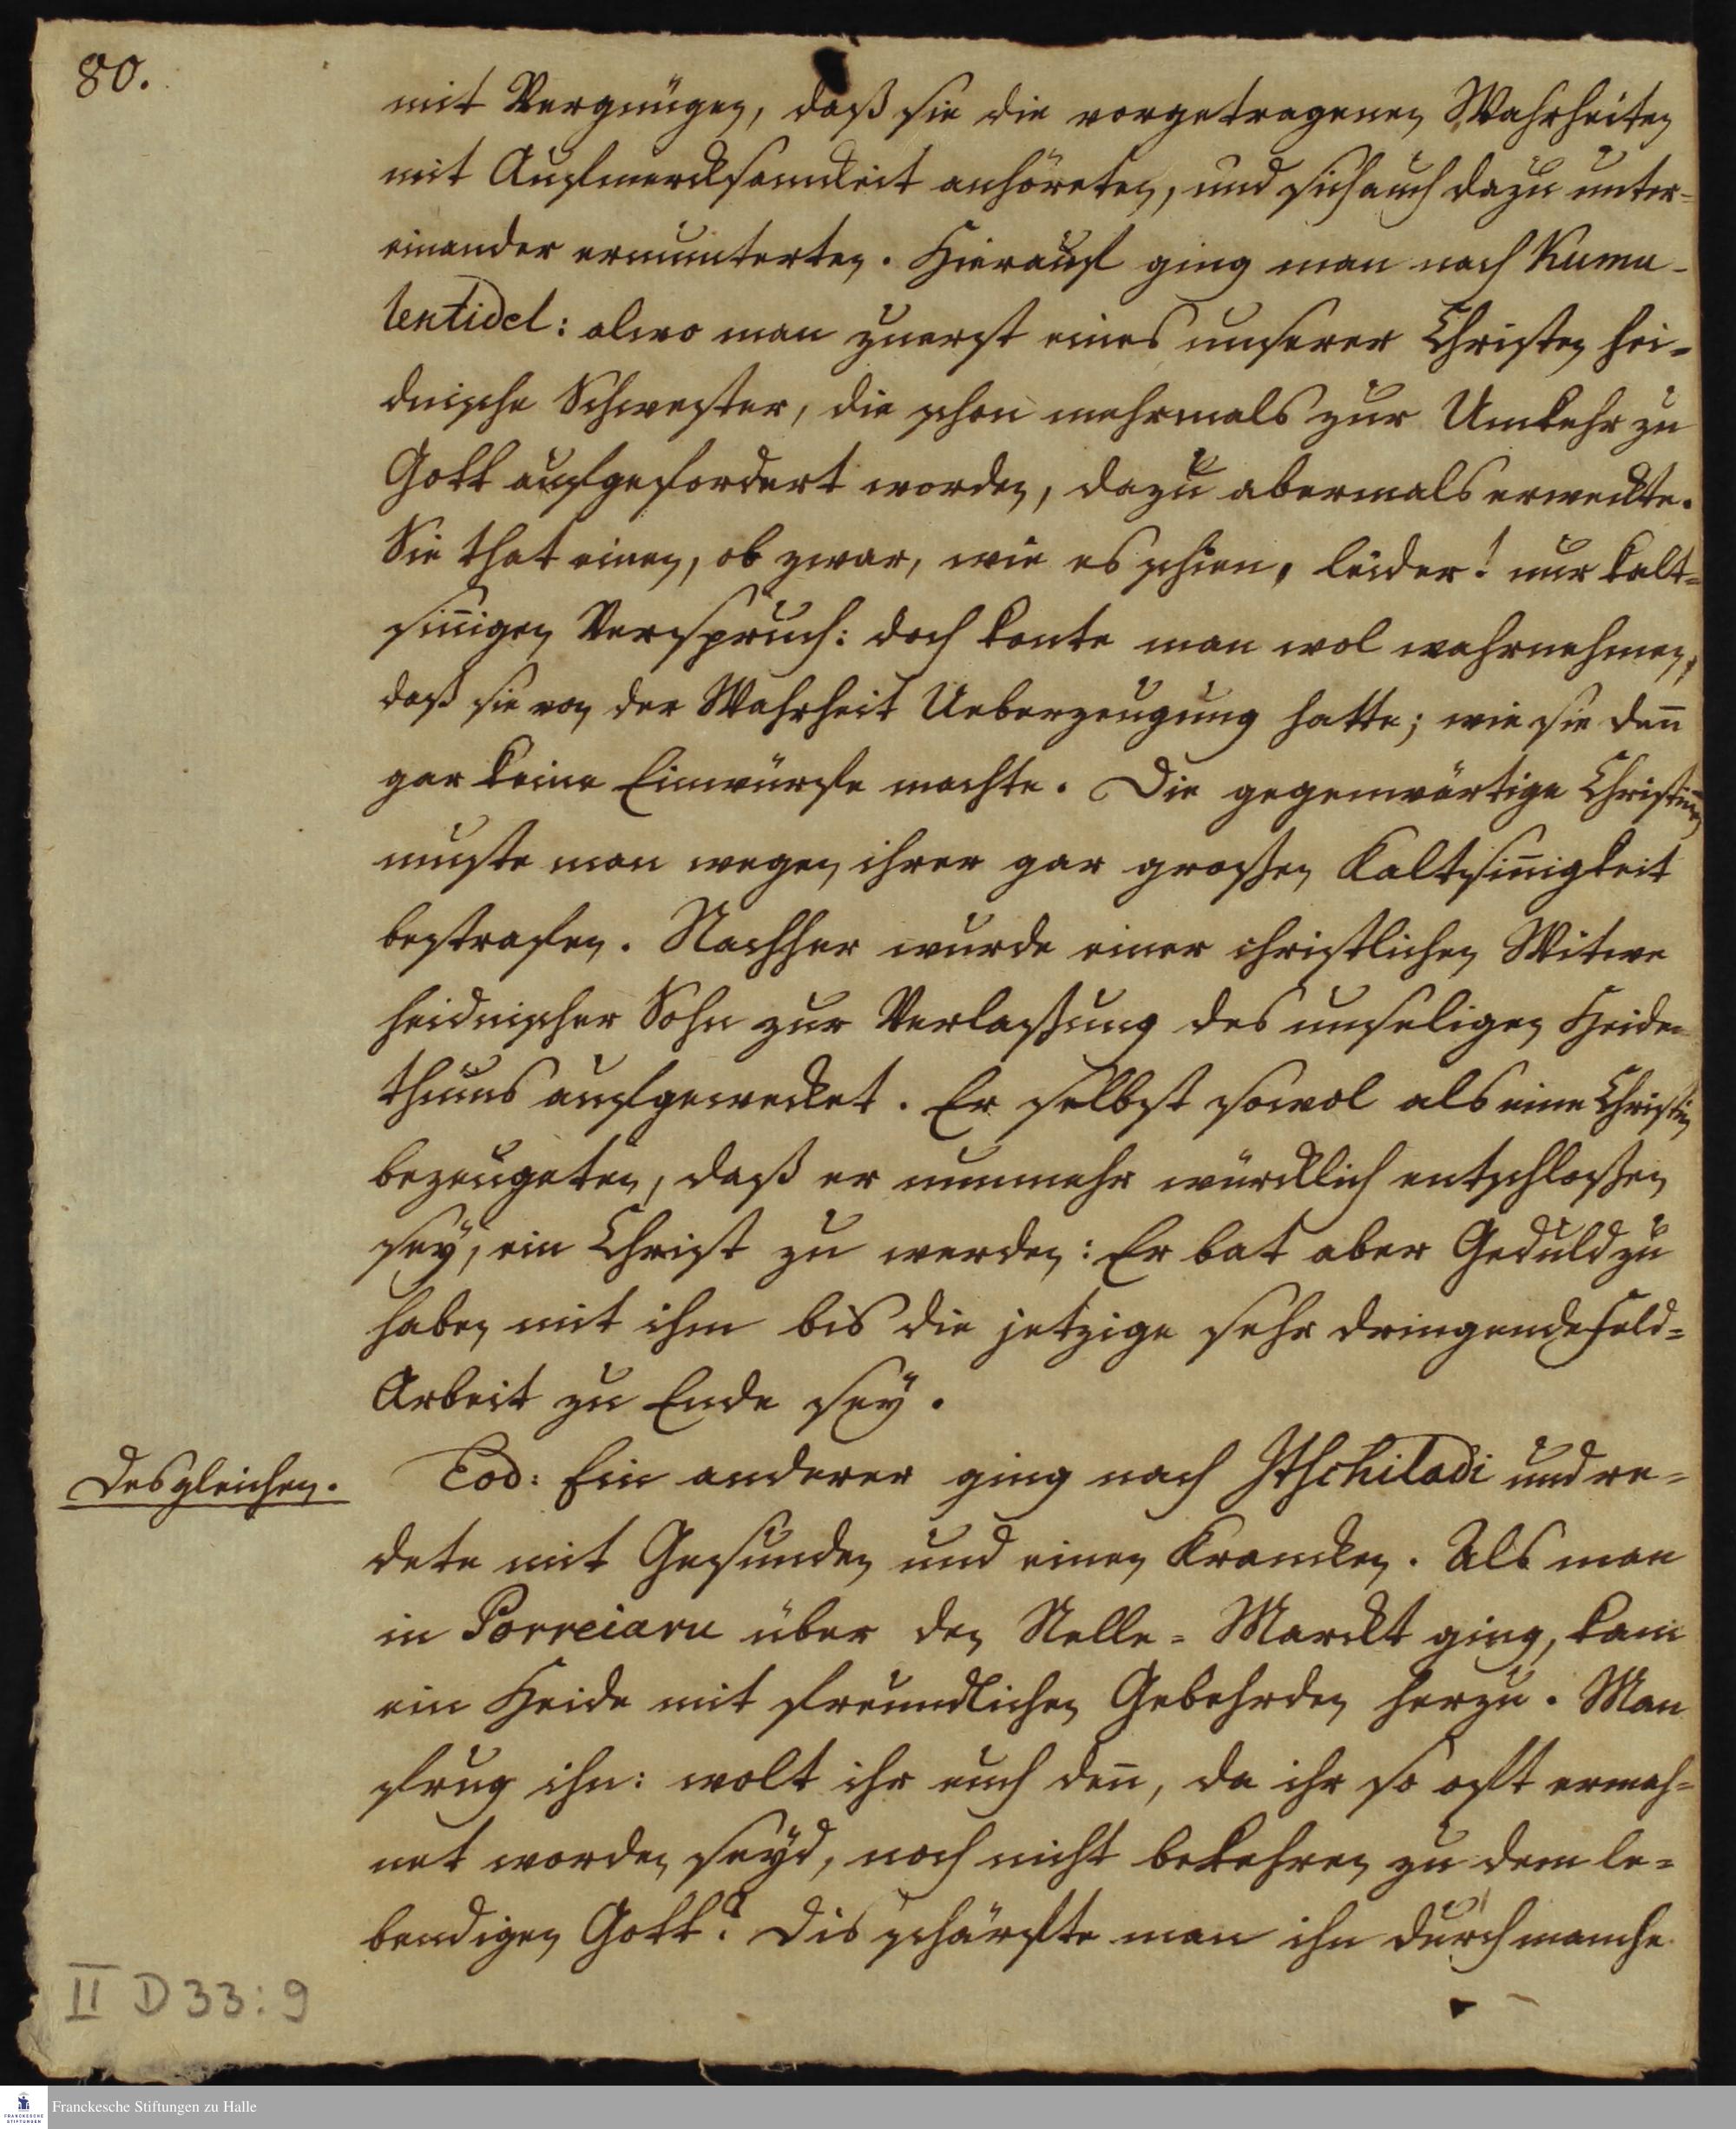 80.
mit Vergnügen, daß sie die vorgetragenen Wahrheiten
mit Aufmercksamkeit anhöreten, und sich auch dazu unter-
einander ermunterten. Hierauf ging man nach Kumu-
tentidel: alwo man zuerst eines unserer Christen hei-
dnische Schwester, die schon mehrmals zur Umkehr zu
Gott aufgefordert worden, dazu abermals erweckte.
Sie that einen, ob zwar, wie es schien, leider! nur kalt-
sin̄igen Verspruch: doch konte man wol wahrnehmen,
daß sie von der Wahrheit Ueberzeugung hatte; wie sie den̄
gar keine Einwürfe machte. Die gegenwärtige Christin̄en
muste man wegen ihrer gar großen Kaltsin̄igkeit
bestrafen. Nachher wurde einer christlichen Witwe
heidnischer Sohn zur Verlaßung des unseligen Heiden-
thums aufgewecket. Er selbst sowol als eine Christin
bezeugeten, daß er nunmehr würcklich entschloßen
seÿ, ein Christ zu werden: Er bat aber Geduld zu
haben mit ihm bis die jetzige sehr dringende Feld-
Arbeit zu Ende seÿ.
Desgleichen.
Eod: Ein anderer ging nach Itschiladi und re-
dete mit Gesunden und einen Krancken. Als man
in Porreiaru über den Nelle-Marckt ging, kam
ein Heide mit freundlichen Gebehrden herzu. Man
frug ihn: wolt ihr euch den̄, da ihr so oft ermah-
net worden seÿd, noch nicht bekehren zu dem le-
bendigen Gott? Dis schärfte man ihn durch manche
II D 33:9
FRANCKESCHE STIFTUNGEN
Franckesche Stiftungen zu Halle